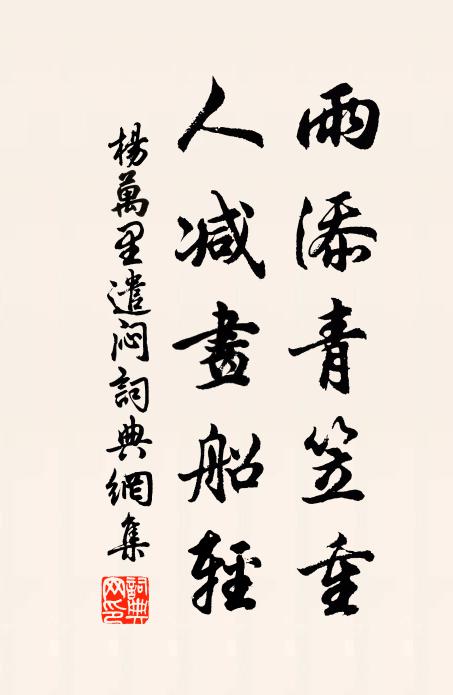 雨添青笠重
人减畫船輕
楊萬里遣闷詞典網集
詞典网印